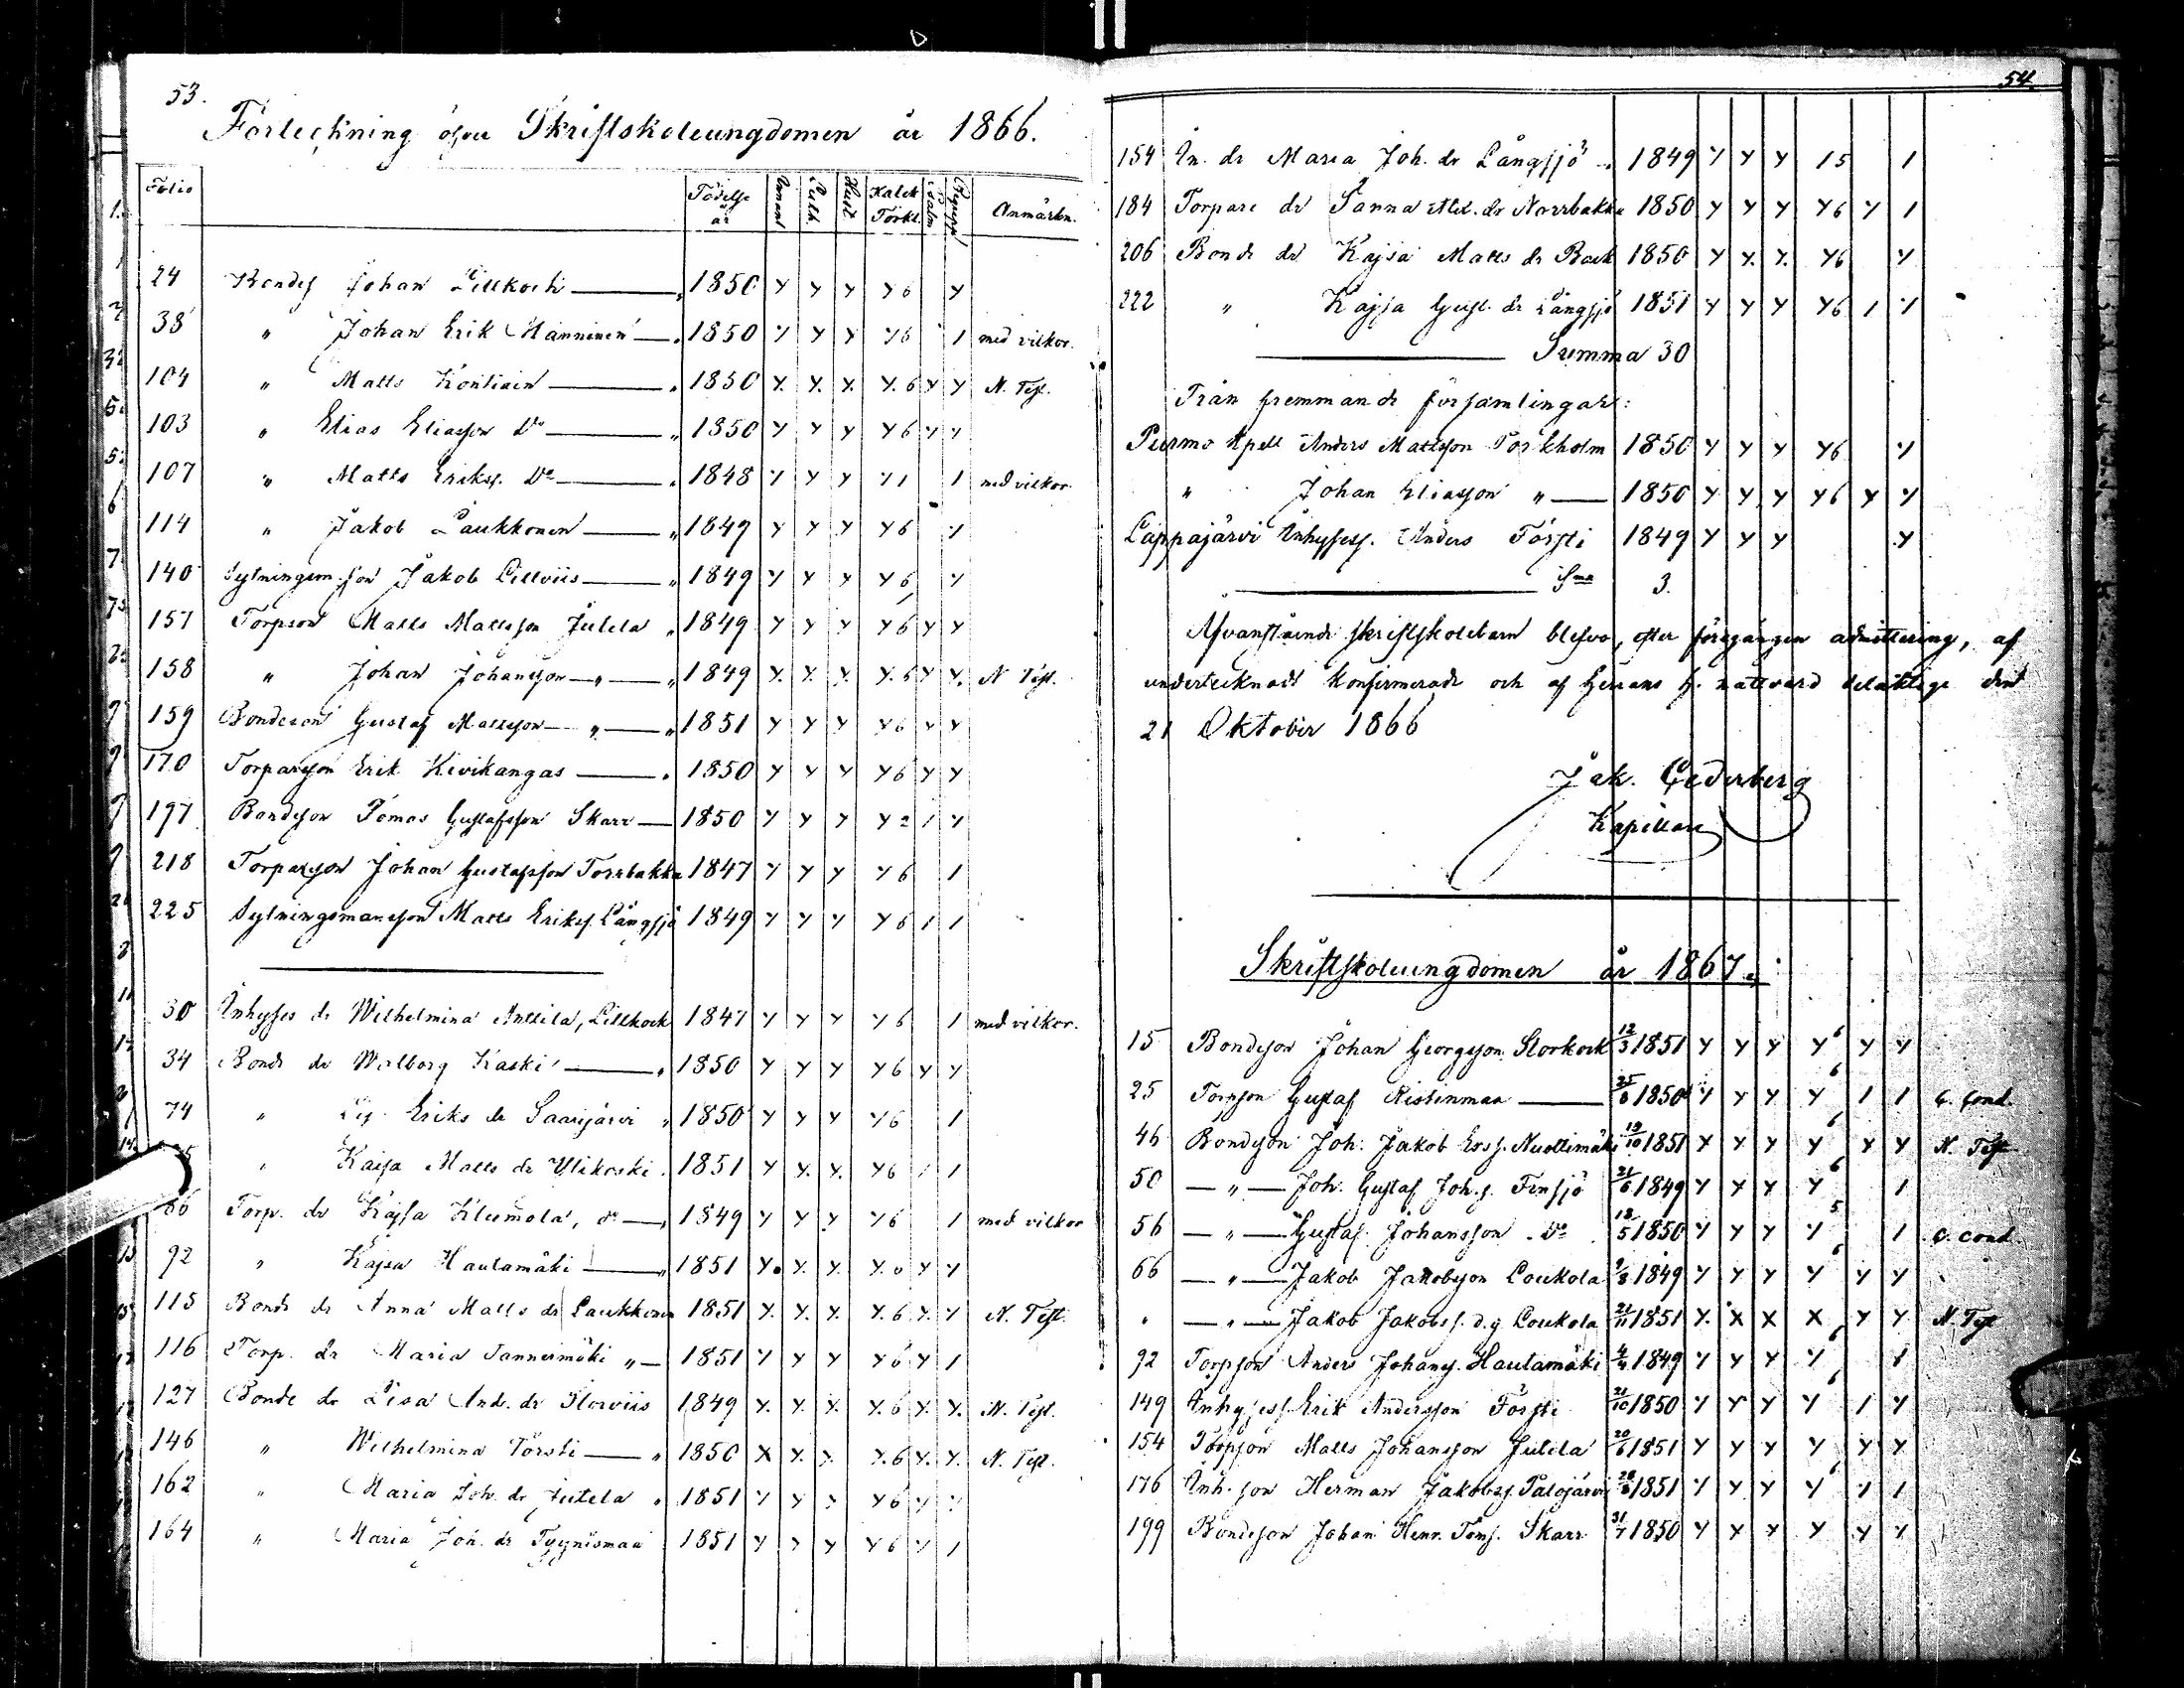 53.
Förteckning öfver Skriftskoleungdomen år 1866.
Folio Födelse år Hust. Katek Förkl. Anmärkn.
24 Bondes Johan Lillkock 1850 y y y y 6 y
38 " Johan Erik Männinen 1850 y y y y 6 1 med vilkor.
104 " Matts Kontiain 1850 y. y. y. y. 6 y y N. Test.
103 " Elias Eliasson Do 1850 y y y y 6 y y
107 " Matts Eriks. Do 1848 y y y y 1 1 med vilkor.
114 " Jakob Laukkonen 1849 y y y y 6 y
140 Sytningsm. son Jakob Lillviis 1849 y y y y 6 y
157 Torpson Matts Mattsson Jutela 1849 y y y y 6 y y
158 " Johan Johansson " 1849 y. y. y. y. 6 y y. N Test.
159 Bondeson Gustaf Mattsson " 1851 y y y y 6 y y
170 Torparson Erik Kivikangas 1850 y y y y 6 y y
197 Bondeson Tomas Gustafsson Skarr 1850 y y y y 2 1 y
218 Torparson Johan Gustafsson Torrbakka 1847 y y y y 6 1
225 Sytningsmansson Matts Eriks. Långsjö 1849 y y y y 6 1 1
30 Inhyses dr Wilhelmina Anttila, Lillkock 1847 y y y y 6 1 med vilkor.
34 Bonde dr Walborg Kaski 1850 y y y y 6 y y
74 " Lis. Eriks dr Saarijärvi 1850 y y y y 6 1
" Kajsa Matts dr Ylikoski 1851 y y. y. y 6 1 1
66 Torp. dr Kajsa Klemola, do 1849 y y y y 6 1 med vilkor
92 " Kajsa Hautamäki 1851 y. y. y. y. 6 y y
115 Bonde dr Anna Matts dr Laukkonen 1851 y. y. y. y. 6 y. y N. Test.
116 Torp. dr Maria Tannermäki " 1851 y y y y 6 y 1
127 Bonde dr Lisa And. dr Storviis 1849 y. y. y. y. 6 y. y. N. Test.
146 " Wilhelmina Försti " 1850 x y. y. y. 6 y. y. N. Test.
162 " Maria Joh. dr Jutela 1851 y y y y 6 y y
164 " Maria Joh. dr Tyynismaa 1851 y y y y 6 y 1
54.
154 In. dr Maria Joh. dr Långsjö 1849 y y y 15 1
184 Torpare dr Sanna Med. dr Norrbakka 1850 y y y y6 y 1
206 Bonde dr Kajsa Matts dr Back 1850 y y. y. y6 y
222 " Kajsa Gust. dr Långsjö 1851 y y y y6 1 y
Summa 30
Från fremmande församlingar:
Purmo kpell Anders Mattsson Forsholm 1850 y y y y6 y
" Johan Eliasson " 1850 y y y y6 y y
Lappajärvi Inhyses s. Anders Försti 1849 y y y y
Sma 3.
Ofvanstående skriftskolebarn blefvo, efter föregången admittering, af
undertecknad konfirmerade och af Herrans h. nattvard delaktige den
21 Oktober 1866
Jak. Cederberg
Kapellan
Skriftskoleungdomen år 1867.
15 Bondeson Johan Georgsson Storkock 12/3 1851 y y y y6 y y
25 Torpson Gustaf Ristinmaa 25/8 1850 y y y y6 1 1 c. cond.
46 Bondeson Joh. Jakob Erss. Nuottimäki 19/10 1851 y y y y6 y y N. Test
50 " Joh. Gustaf Joh.s. Finsjö 21/6 1849 y y y y6 1
56 " Gustaf Johansson Do 18/5 1850 y y y y5 1 c. cond.
66 " Jakob Jakobsson Loukola 9/8 1849 y y y y6 y y
" " Jakob Jakobs s. d.y Loukola 22/11 1851 y. x x x y y N. Test
92 Torpson Anders Johans s. Hautamäki 4/4 1849 y y y y6 1
149 Inhyses s. Erik Andersson Försti 21/10 1850 y y y y6 1 y
154 Torpson Matts Johansson Jutela 20/6 1851 y y y y y y
176 Inh. son Herman Jakobss. Palojärvi 28/8 1851 y y y y6 y 1
199 Bondeson Johan Henr. Toms. Skarr 31/7 1850 y y y y y y